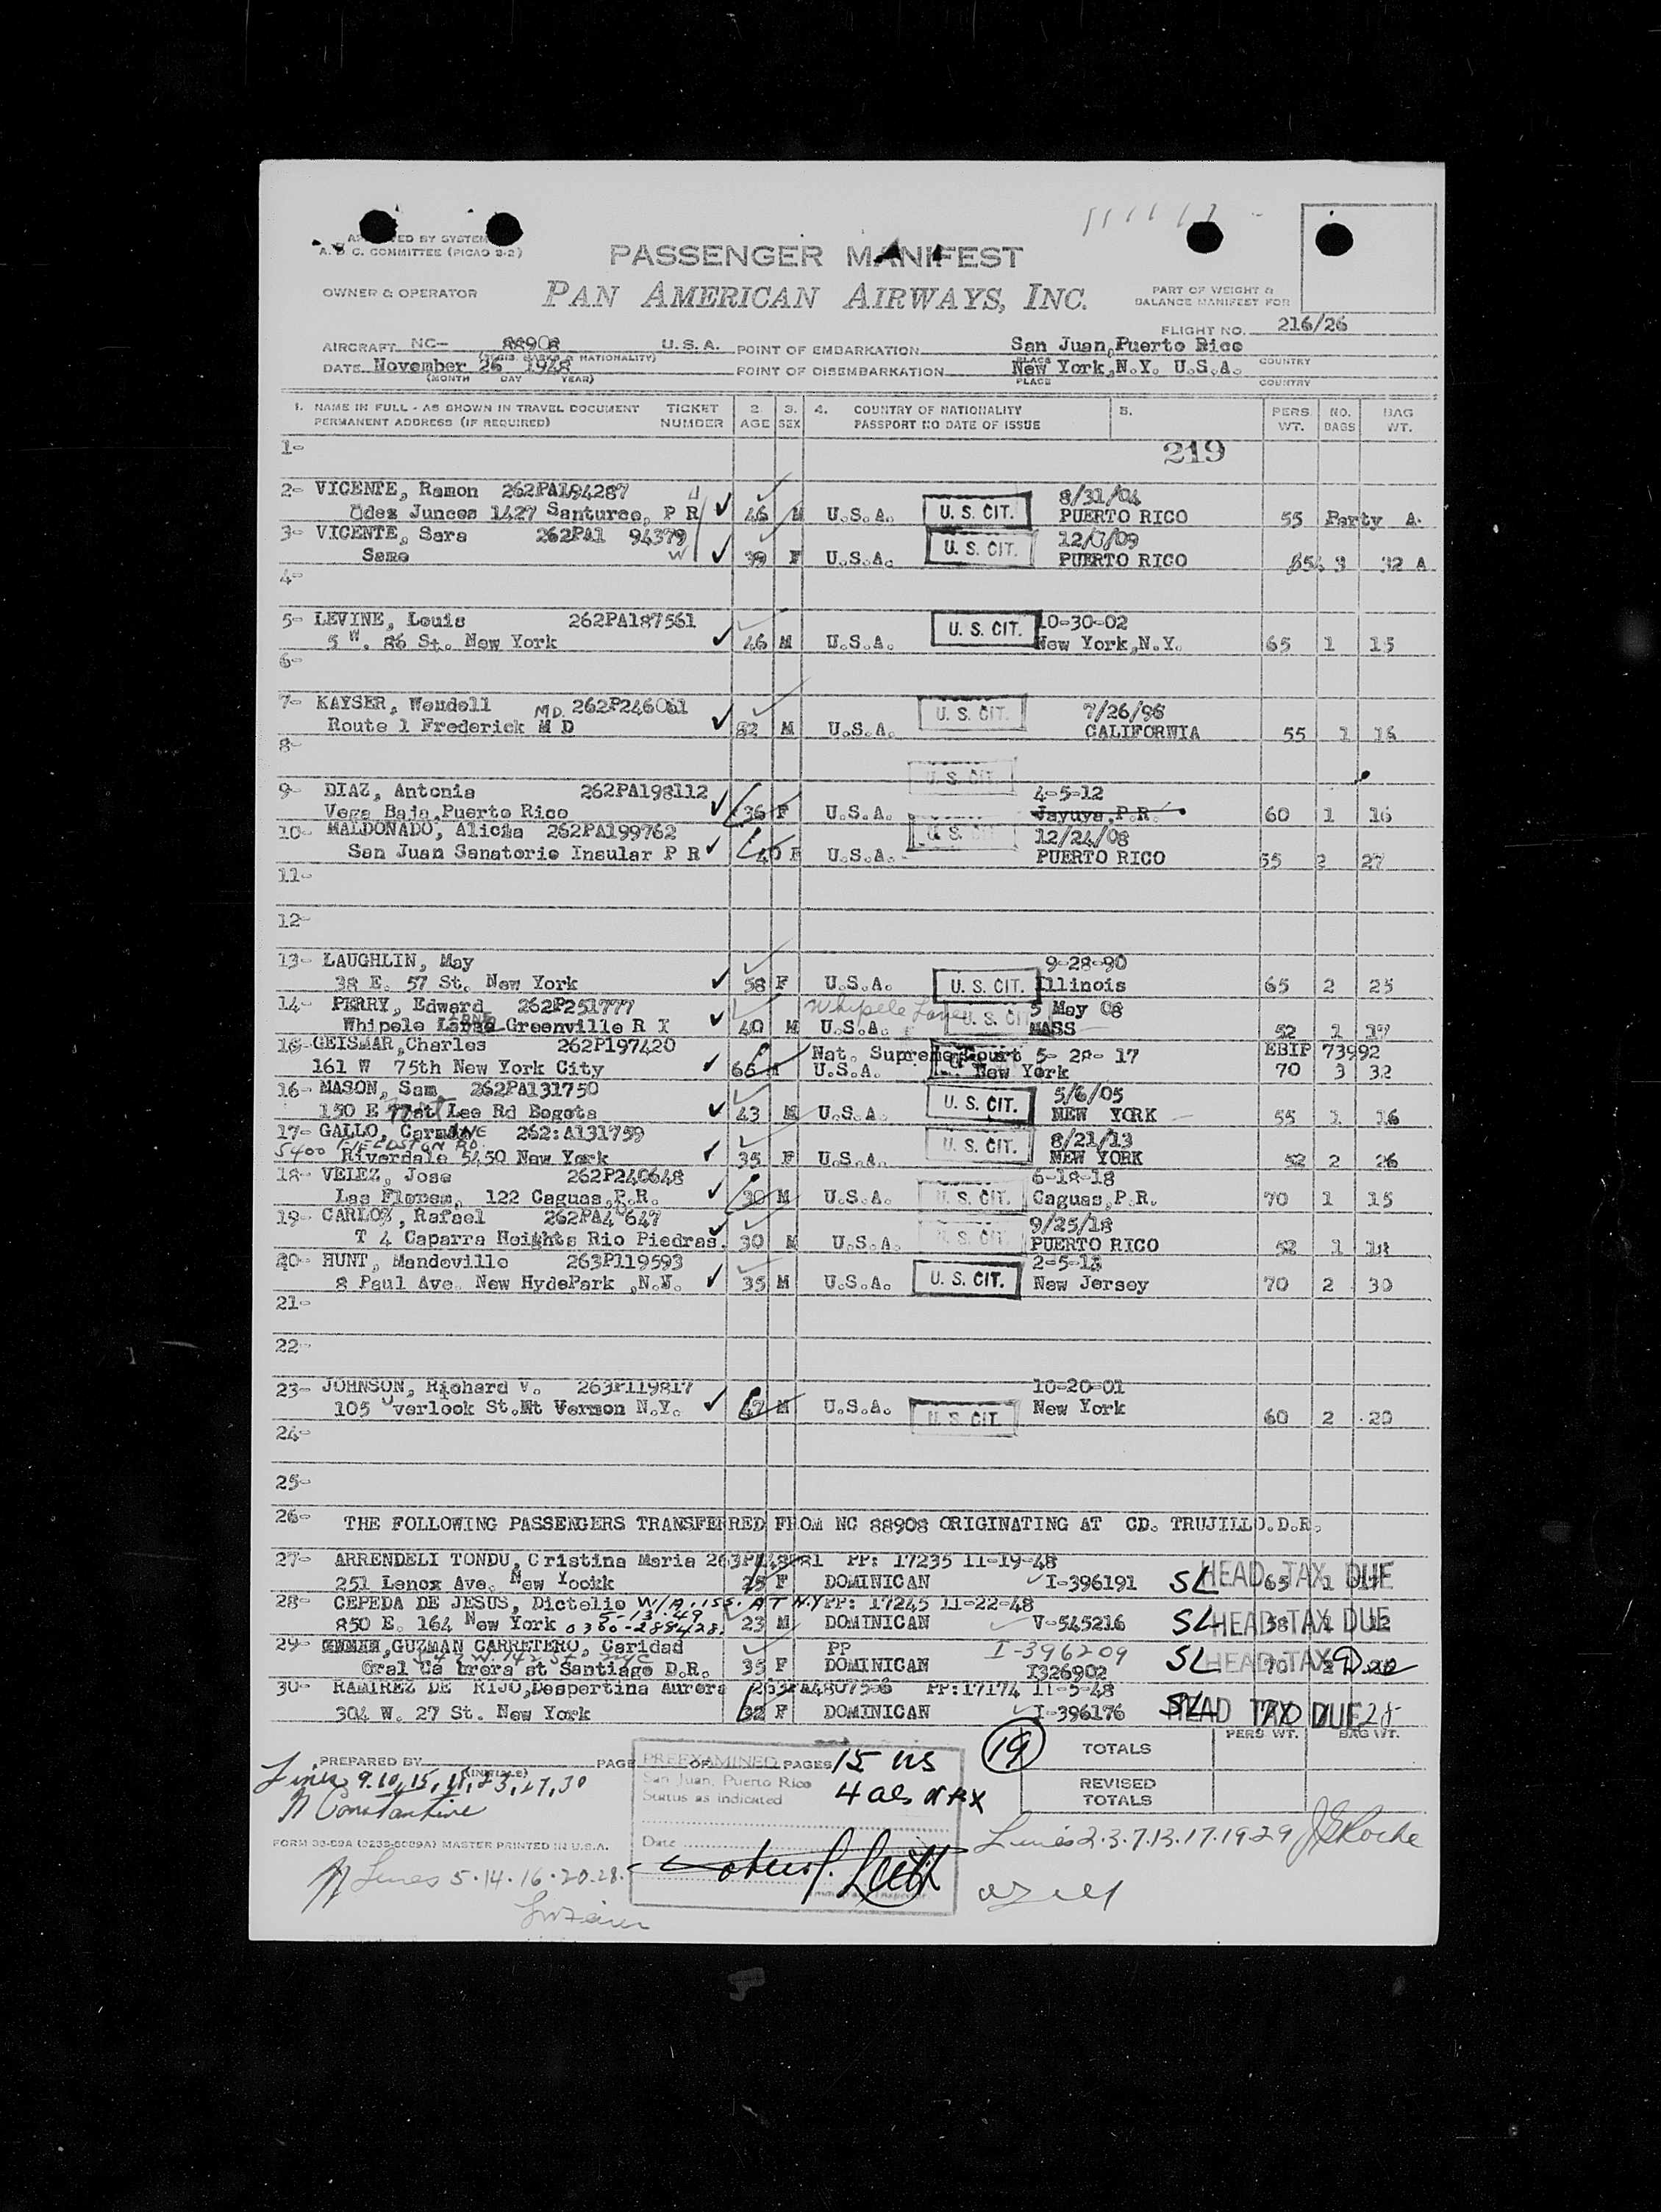 APPROVED BY SYSTEM
A. & C. COMMITTEE (PICAO 2-2)
PASSENGER MANIFEST
OWNER & OPERATOR PAN AMERICAN AIRWAYS, INC. PART OF WEIGHT & BALANCE MANIFEST FOR
FLIGHT NO. 216/26
AIRCRAFT NC- 88908 U.S.A. POINT OF EMBARKATION San Juan, Puerto Rico
(REGIS. MARKS & NATIONALITY) PLACE COUNTRY
DATE November 26 1948 POINT OF DISEMBARKATION New York, N.Y. U.S.A.
(MONTH DAY YEAR) PLACE COUNTRY
1. NAME IN FULL - AS SHOWN IN TRAVEL DOCUMENT TICKET 2. 3. 4. COUNTRY OF NATIONALITY 5. PERS. NO. BAG
PERMANENT ADDRESS (IF REQUIRED) NUMBER AGE SEX PASSPORT NO DATE OF ISSUE WT. BAGS WT.
1- 219
2- VICENTE, Ramon 262PA194287 8/31/04
Odez Juncos 1427 Santurce, P R 46 M U.S.A. U. S. CIT. PUERTO RICO 55 Party A.
3- VICENTE, Sara 262PA1 94379 W 12/ /09
Same 39 F U.S.A. U. S. CIT. PUERTO RICO 3 32 A
4-
5- LEVINE, Louis 262PA187561 10-30-02
5 W. 86 St. New York 46 M U.S.A. U. S. CIT. New York, N.Y. 65 1 15
6-
7- KAYSER, Wendell MD. 262P246061 7/26/96
Route 1 Frederick M D 52 M U.S.A. U. S. CIT. CALIFORNIA 55 1 16
8-
9- DIAZ, Antonia 262PA198112 U. S. CIT. 4-5-12
Vega Baja, Puerto Rico 36 F U.S.A. Jayuya, P.R. 60 1 16
10- MALDONADO, Alicia 262PA199762 U. S. CIT. 12/24/08
San Juan Sanatorio Insular P R 40 F U.S.A. PUERTO RICO 55 2 27
11-
12-
13- LAUGHLIN, May 9-28-90
38 E. 57 St. New York 58 F U.S.A. U. S. CIT. Illinois 65 2 25
14- PERRY, Edward 262P251777 Whipele Lane 5 May 08
Whipele Lane Greenville R I 40 M U.S.A. U. S. CIT. MASS 52 1 17
15- GEISMAR, Charles 262P197420 Nat. Supreme Court 5- 28- 17 EBIP 73992
161 W 75th New York City 66 M U.S.A. New York 70 3 32
16- MASON, Sam 262PA131750 5/6/05
150 E Lee Rd Bogota 43 M U.S.A. U. S. CIT. NEW YORK 55 1 16
17- GALLO, Carmine 262:A131759 8/21/13
5400 FIELDSTON RD.
Riverdale 5450 New York 35 F U.S.A. U. S. CIT. NEW YORK 52 2 26
18- VELEZ, Jose 262P240648 6-18-18
Las Flores, 122 Caguas, P.R. 30 M U.S.A. U. S. CIT. Caguas, P.R. 70 1 15
19- CARLO, Rafael 262PA40647 9/25/18
T 4 Caparra Heights Rio Piedras. 30 M U.S.A. U. S. CIT. PUERTO RICO 52 1 18
20- HUNT, Mandeville 263P119593 2-5-13
8 Paul Ave. New HydePark , 35 M U.S.A. U. S. CIT. New Jersey 70 2 30
21-
22-
23- JOHNSON, Richard V. 263P119817 10-20-01
105 Overlook St. Mt Vernon N.Y. 47 M U.S.A. U. S. CIT. New York 60 2 20
24-
25-
26- THE FOLLOWING PASSENGERS TRANSFERRED FROM NC 88908 ORIGINATING AT CD. TRUJILLO.D.R.
27- ARRENDELI TONDU, Cristina Maria PP: 17235 11-19-48
251 Lenox Ave. New Yookk 25 F DOMINICAN I-396191 SL HEAD TAX DUE 65 1
28- CEPEDA DE JESUS, Dictelio W/A. ISS. AT N.Y PP: 17245 11-22-48
5-13-49
850 E. 164 New York 0300-288428. 23 M DOMINICAN V-545216 SL HEAD TAX DUE 58 1 12
29- GUZMAN CARRETERO, Caridad PP I-396209
542 W. 142 St. NYC
Gral Ca brera st Santiago D.R. 35 F DOMINICAN I326902 SL HEAD TAX D 70 2
30- RAMIREZ DE RIJO, Despertina Aurora PP:17174 11-5-48
304 W. 27 St. New York 32 F DOMINICAN I-396176 SL HEAD TAX DUE 70 25
PREPARED BY (INITIALS) PAGE OF PAGES 19 TOTALS PERS WT. BAG WT.
REVISED TOTALS
PREEXAMINED
San Juan, Puerto Rico
Status as indicated
Date
15 US
4 als
Lines 9.10,15,18,23,27,30
N Constantine
FORM 33-89A (0233-8089A) MASTER PRINTED IN U.S.A.
Lines 2.3.7.13.17.19.29 J Roche
Lines 5.14.16.20.28.